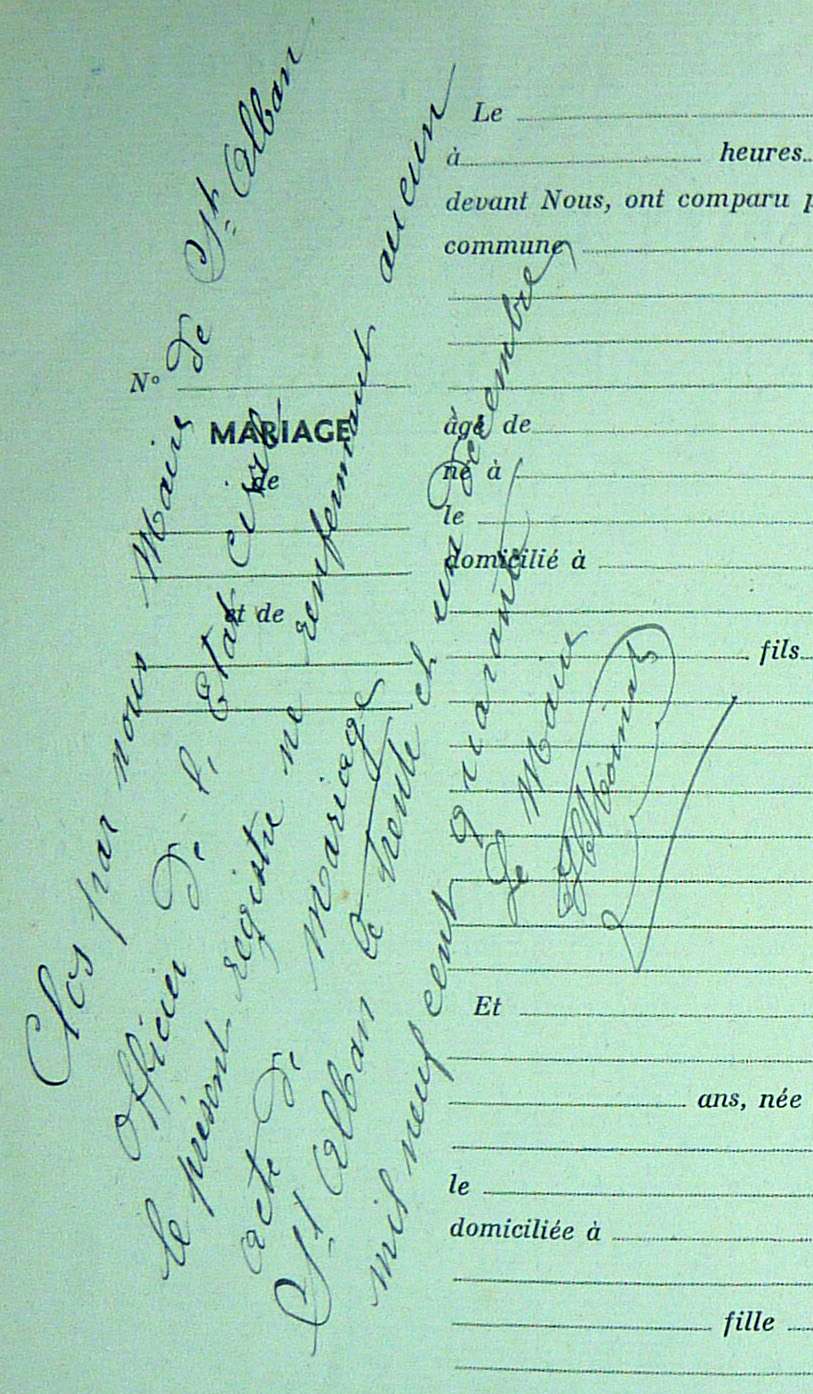 Clos par nous Maire de St Alban
Officier de l'Etat civil
le présent registre ne renfermant aucun
acte de Mariage
St Alban le trente et un Décembre
mil neuf cent quarante
Le Maire
N°
MARIAGE
de
et de
Le
à heures
devant Nous, ont comparu p
commune
âgé de
né à
le
domicilié à
fils
Et
ans, née
le
domiciliée à
fille